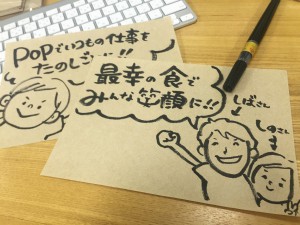 POPでいつもの仕事を
たのしく!!
最幸の食で
みんな笑顔に!!
しばさん